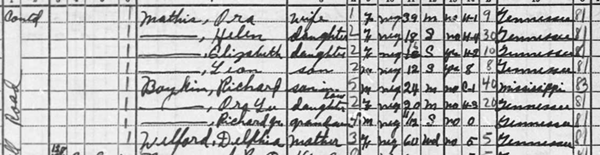 Contd 1 Mathis, Ora wife 1 F neg 39 m no 9 Tennessee 81
1 ——, Helen daughter 2 F neg 18 S no 30 Tennessee 81
1 ——, Elizabeth daughter 2 F neg S yes 10 Tennessee 81
1 ——, Lian son 2 m neg 12 S yes 8 8 Tennessee 81
1 Boykin, Richard son in law 5 m neg 24 m no 40 Mississippi 83
1 ——, Ora Lu daughter 2 F neg 20 m no 20 Tennessee 81
1 ——, Richard Jr grandson m neg S no 0 Tennessee 81
1 Welford, Delphia mother 3 F neg 60 Wd no 5 5 Tennessee 81
Road